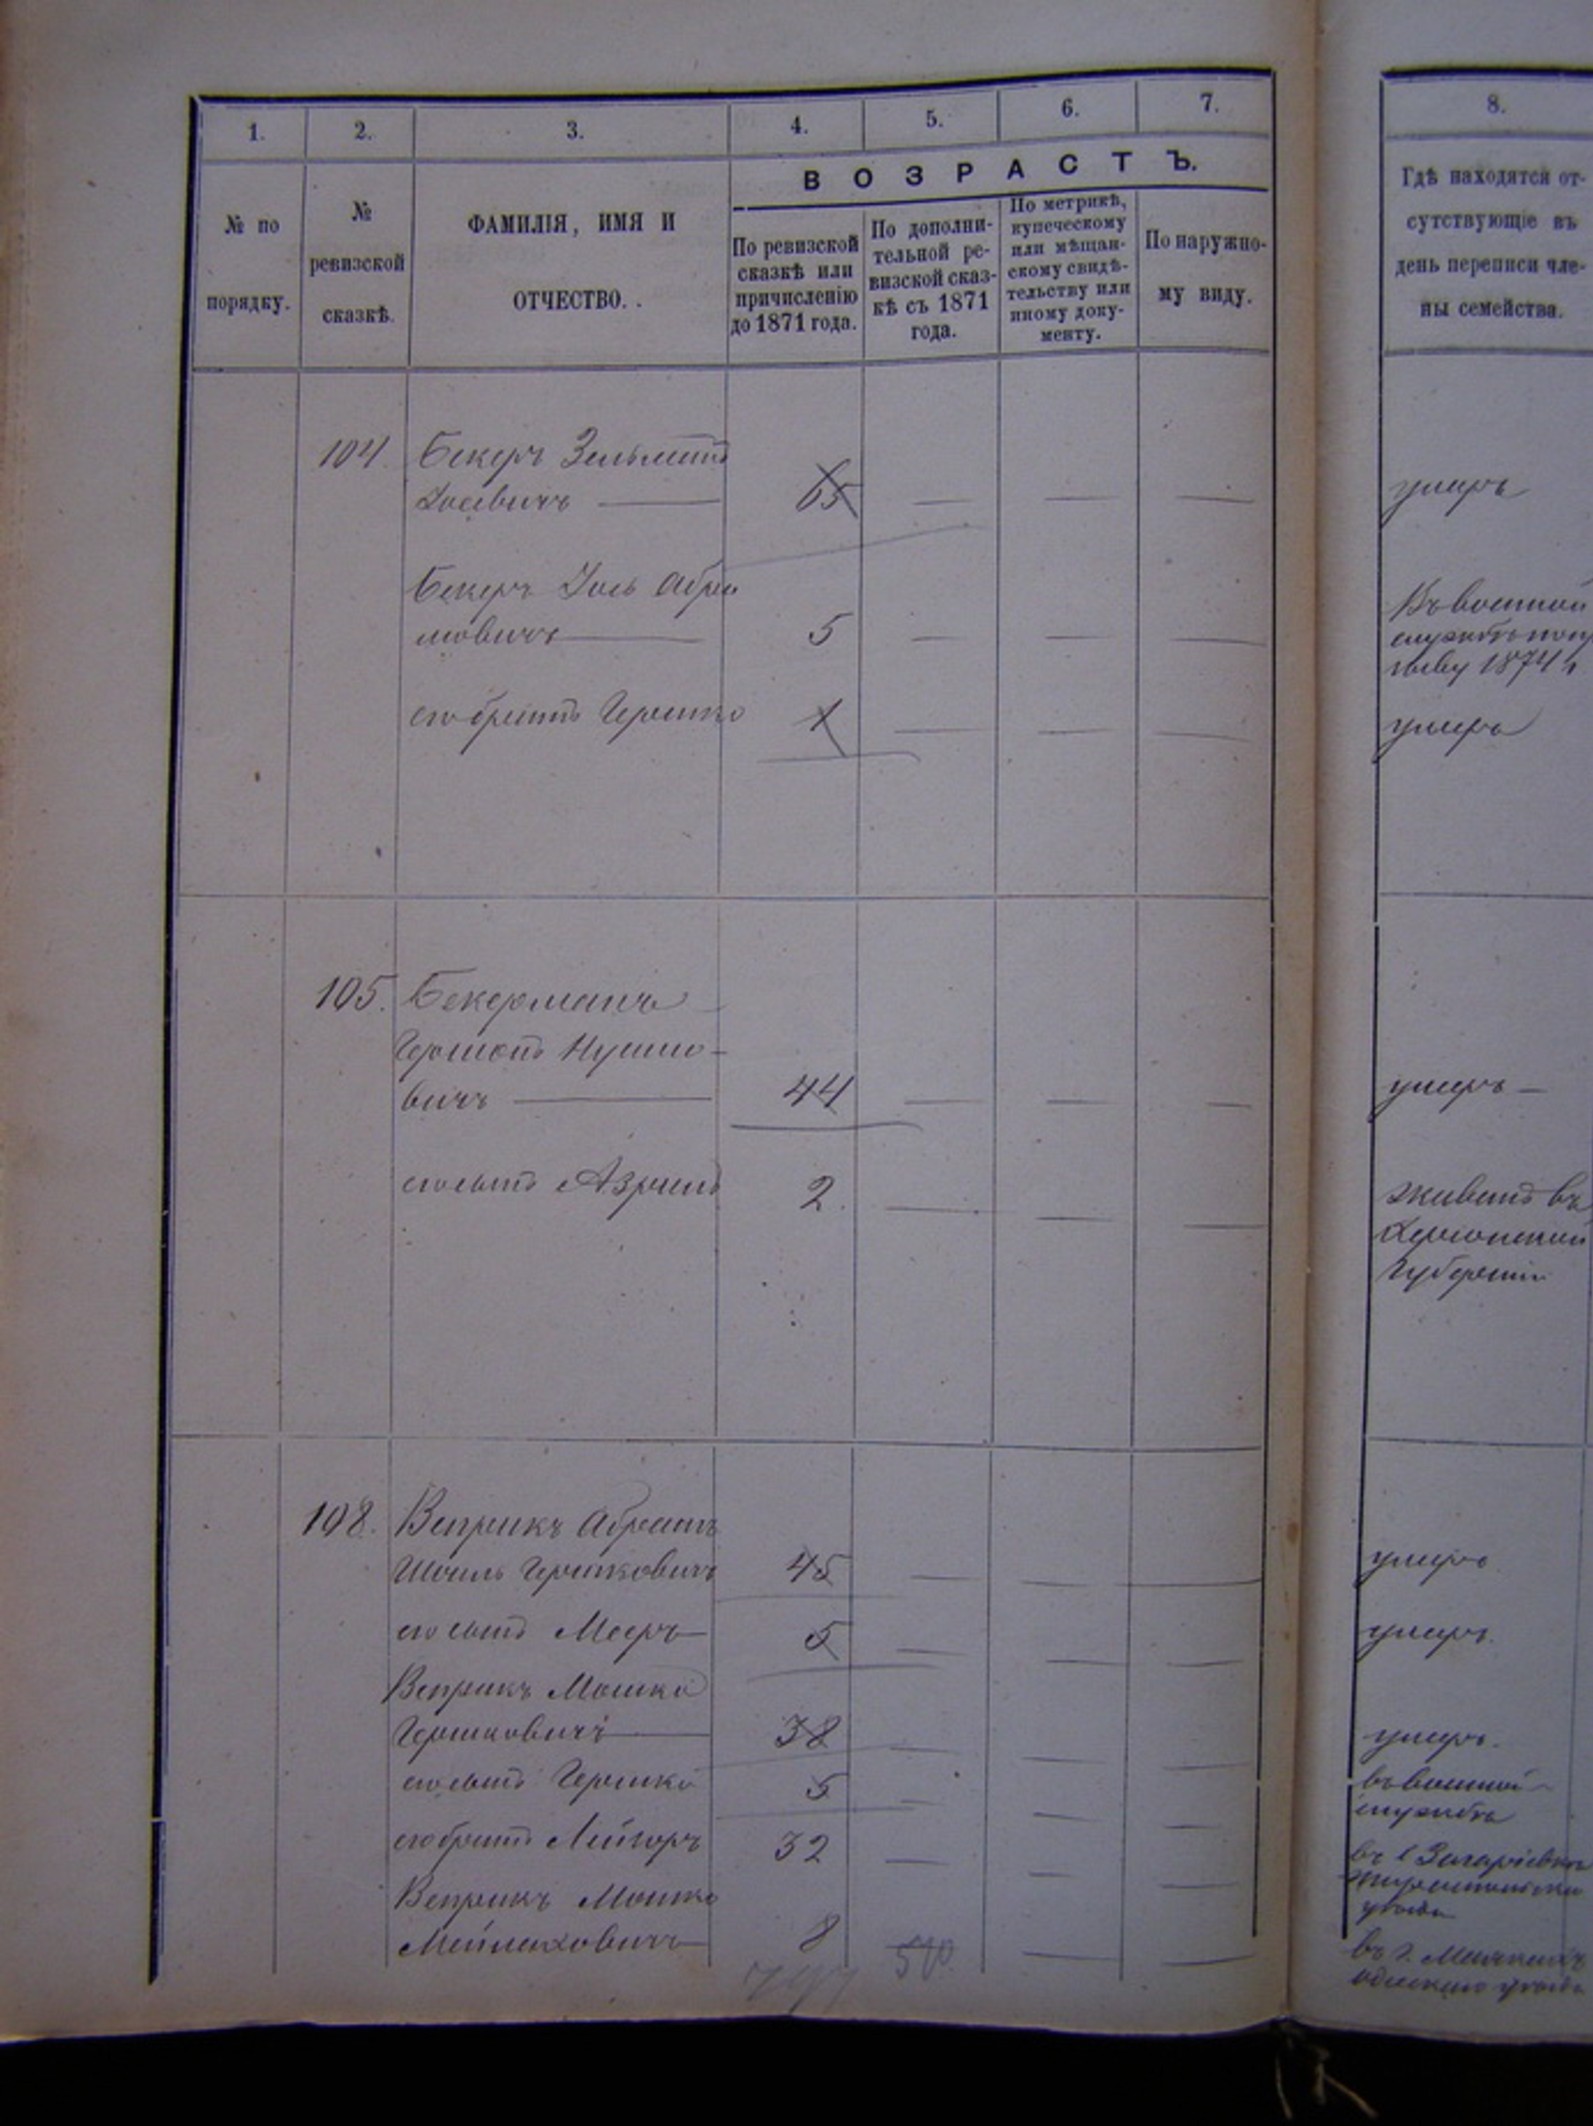 1. 2. 3. 4. 5. 6. 7. 8.
ВОЗРАСТЪ.
№ по
порядку.
№
ревизской
сказкѣ.
ФАМИЛІЯ, ИМЯ И
ОТЧЕСТВО. .
По ревизской
сказкѣ или
причисленію
до 1871 года.
По дополни-
тельной ре-
визской сказ-
кѣ съ 1871
года.
По метрикѣ,
купеческому
или мѣщан-
скому свидѣ-
тельству или
иному доку-
менту.
По наружно-
му виду.
Гдѣ находятся от-
сутствующіе въ
день переписи чле-
ны семейства.
104. Бекеръ
65 умеръ
Бекеръ Іось Абра
мовичъ 5
Въ военной
службѣ
1874 г.
его братъ Гершко 1 умеръ
105. Бекерманъ
вичъ 44 умеръ
его сынъ 2.
живетъ въ
Херсонской
Губерніи
108. Веприкъ Абрамъ
Гершковичъ 45 умеръ
его сынъ Мееръ 5 умеръ.
Веприкъ Мошко
Гершковичъ 38 умеръ.
его сынъ Гершко 5
въ военной
службѣ
его братъ 32
въ с Захарьевкѣ
Тираспольскаго
уѣзда
Веприкъ Мошко
Мейлеховичъ 8
въ
одесскаго уѣзда